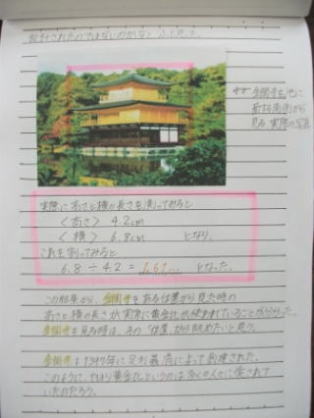 設計されたのではないのかな？と思った。
実際に高さと横の長さを測ってみると
〈高さ〉 4.2cm
〈横〉 6.8cm となり、
これを割ってみると
6.8÷4.2＝1.61… となった。
この結果から、金閣寺をある位置から見た時の
高さと横の長さは、実際に黄金比が使われていることが分かった。
金閣寺を見る時は、その「位置」から眺めたいと思う。
金閣寺は1397年に足利義満によって創建された。
このように、やはり黄金比というのは多くの人に愛されて
いたのだろう。